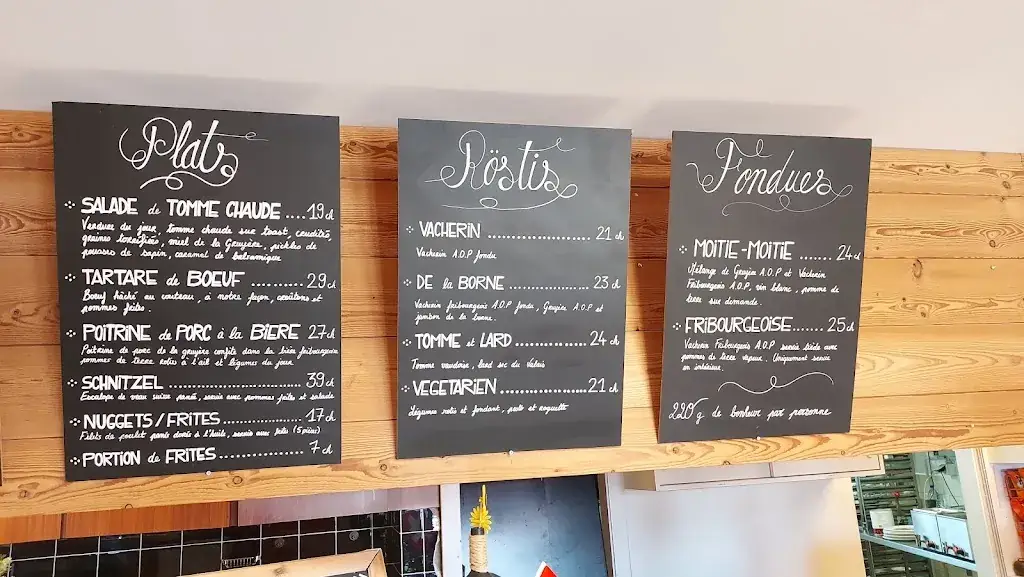 Plats
SALADE de TOMME CHAUDE ....19 ch
Verdure du jour, tomme chaude sur toast, crudités,
graines torréfiées, miel de la Gruyère, pickles de
pousses de sapin, caramel de balsamique
TARTARE de BOEUF ........29 ch
Bœuf hâché au couteau, à notre façon, croûtons et
pommes frites.
POITRINE de PORC à la BIERE 27 ch
Poitrine de porc de la gruyère confite dans la bière fribourgeoise
pommes de terre rotis à l'ail et légume du jour
SCHNITZEL ..............................39 ch
Escalope de veau suisse panée, servie avec pommes frites et salade
NUGGETS/FRITES ..................17 ch
Filets de poulet panés dorés à l'huile, servis avec frites (5 pièces)
PORTION de FRITES ................7 ch
Röstis
VACHERIN ........................21 ch
Vacherin A.O.P fondu
DE la BORNE ....................23 ch
Vacherin fribourgeois A.O.P fondu, Gruyère A.O.P et
jambon de la borne.
TOMME et LARD ................24 ch
Tomme vaudoise, lard sec du Valais
VEGETARIEN ....................21 ch
Légumes rotis et fondant, pesto et roquette
Fondues
MOITIE-MOITIE ........24 ch
Mélange de Gruyère A.O.P et Vacherin
Fribourgeois A.O.P, vin blanc, pomme de
terre sur demande.
FRIBOURGEOISE.......25 ch
Vacherin Fribourgeois A.O.P servie tiède avec
pommes de terre vapeur. Uniquement servie
en intérieur.
220 g de bonheur par personne